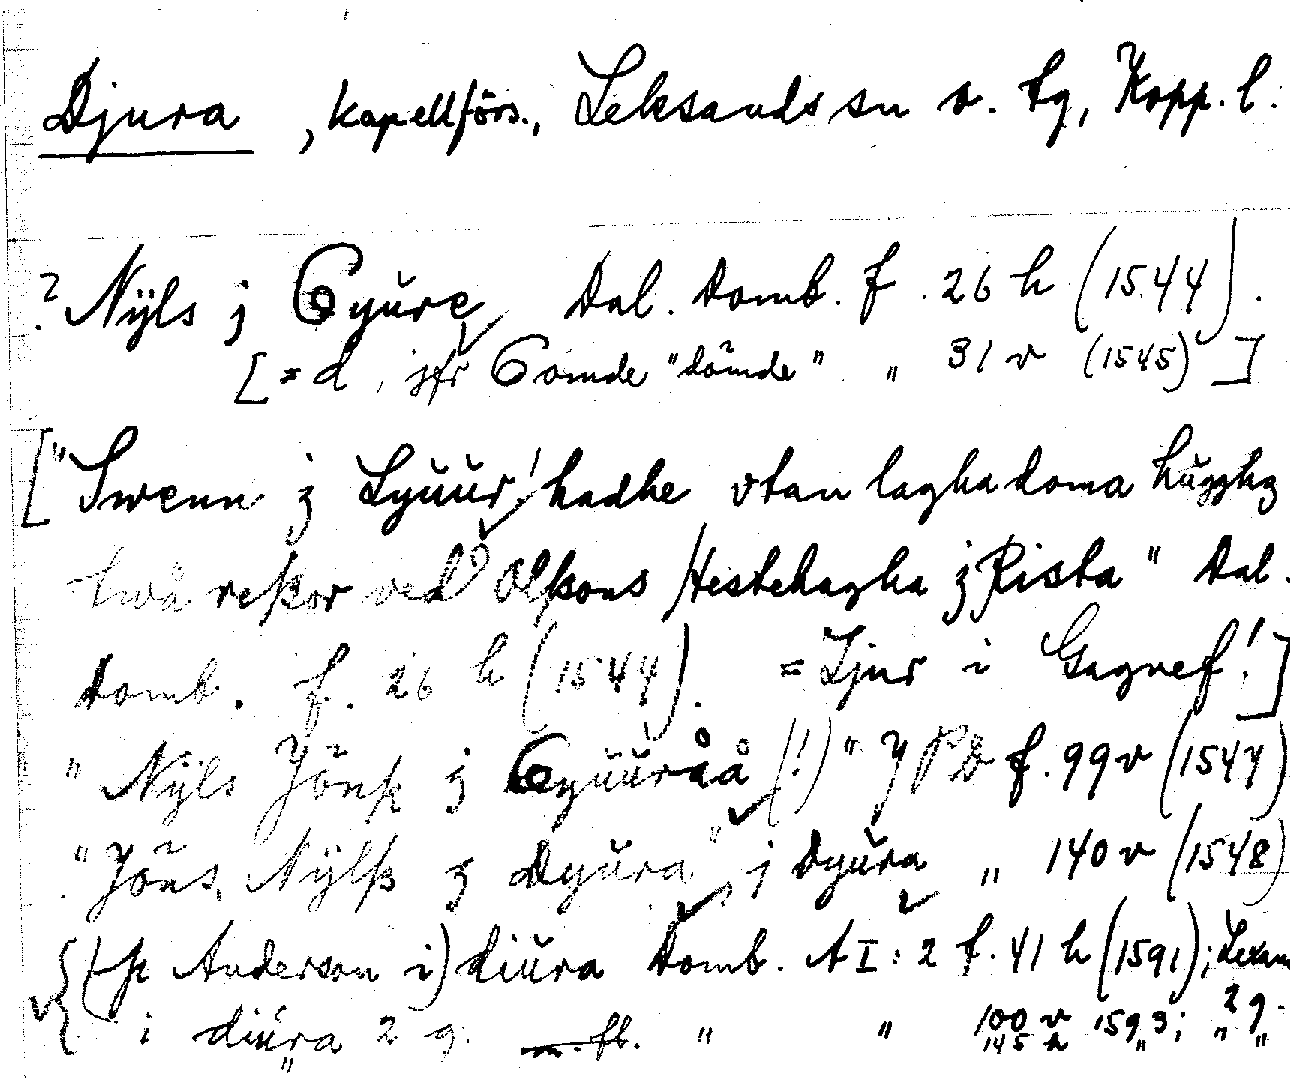 Djura, kapellförs., Leksands sn o. tg, Kopp. l.
? Nÿls j Gyŭre Dal. Domb. f. 26 h (1544).
[= d, jfr Gömde "dömde" " 31 v (1545)]
["Swenn j Lyŭŭr! hadhe vtan laghadoma hŭgghj
twå reßor ved Olßons Hestehagha j Rista" Dal.
Domb. f. 26 h (1544). = Ljur i Gagnef!]
" Nÿls Jönß j Gyŭŭråå (!)" f. 99 v (1547)
"Jöns Nÿlß j Dyŭra", j Dyŭra " 140 v (1548)
(Anderson i) diŭra Domb. A I: 2 f. 41 h (1591);
i diŭra 2 g. m. fl. " " 100 v 1593; " 2 g.
145 h " " "